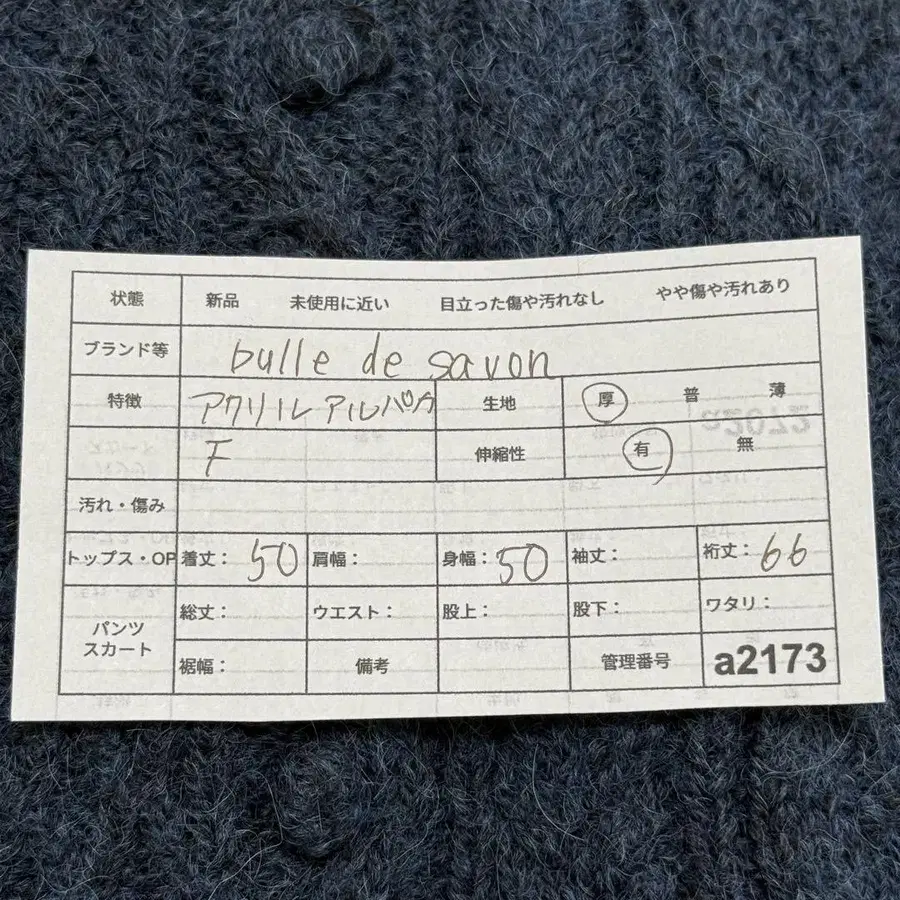 状態 新品 未使用に近い 目立った傷や汚れなし やや傷や汚れあり
ブランド等 bulle de savon
特徴 アクリル アルパカ 生地 厚 普 薄
F 伸縮性 有 無
汚れ・傷み
トップス・OP 着丈: 50 肩幅: 身幅: 50 袖丈: 裄丈: 66
パンツ スカート 総丈: ウエスト: 股上: 股下: ワタリ:
裾幅: 備考 管理番号 a2173